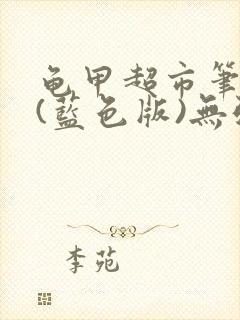 龟甲超市筆
(藍色版)無
李苑